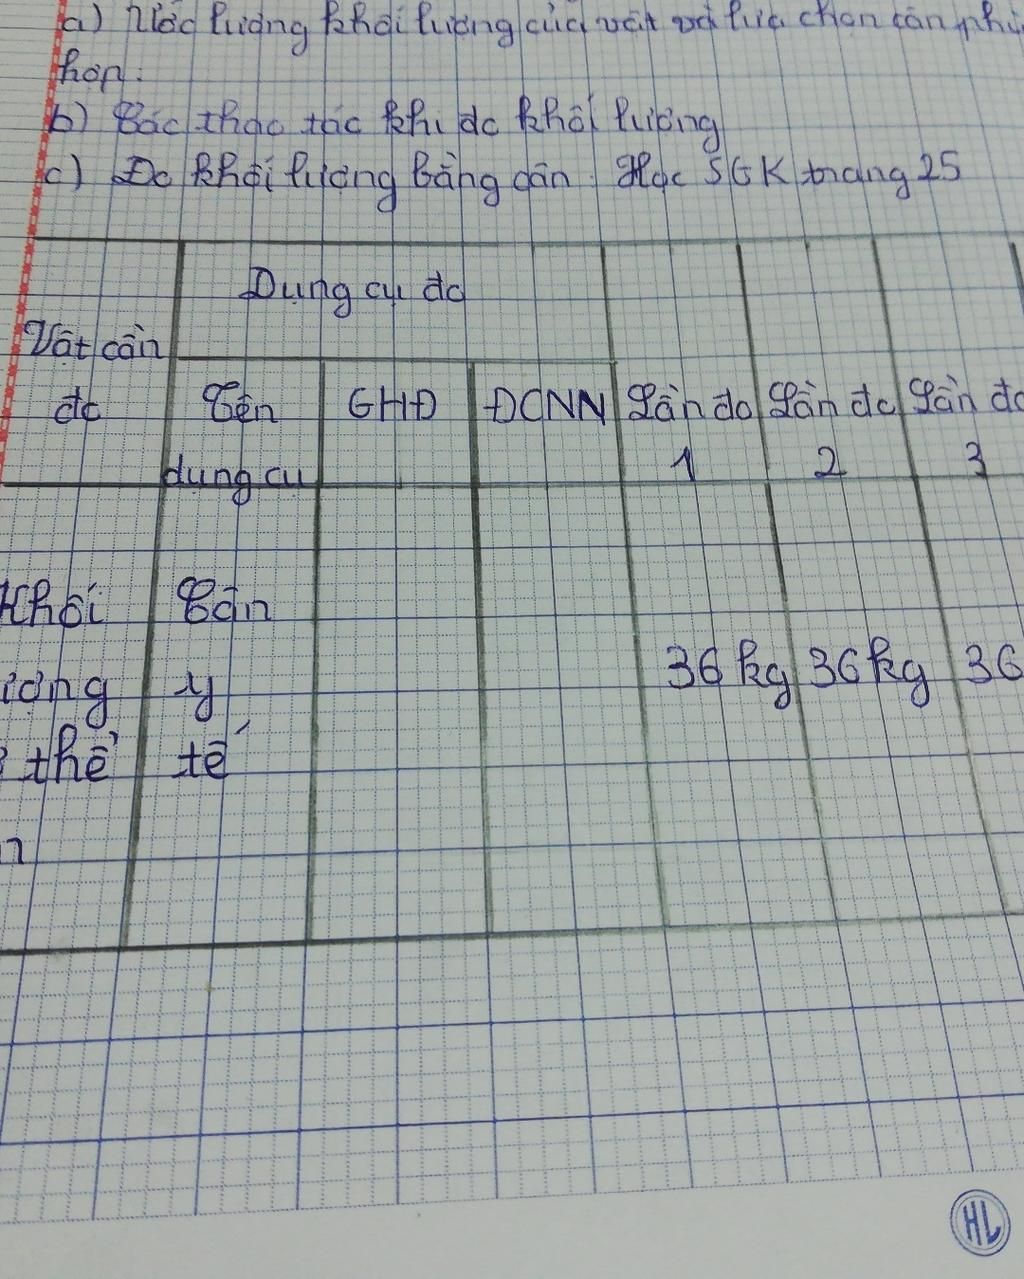 a) Ước lượng khối lượng của vật và lựa chọn cân phù
hợp:
b) Các thao tác khi đo khối lượng
c) Đo khối lượng bằng cân. Học SGK trang 25
Vật cần
đo
Dụng cụ đo
Tên
dụng cụ
GHĐ
ĐCNN
Lần đo
1
Lần đo
2
Lần đo
3
Khối
ượng
thể
Cân
y
tế
36 kg
36 kg
36
HL